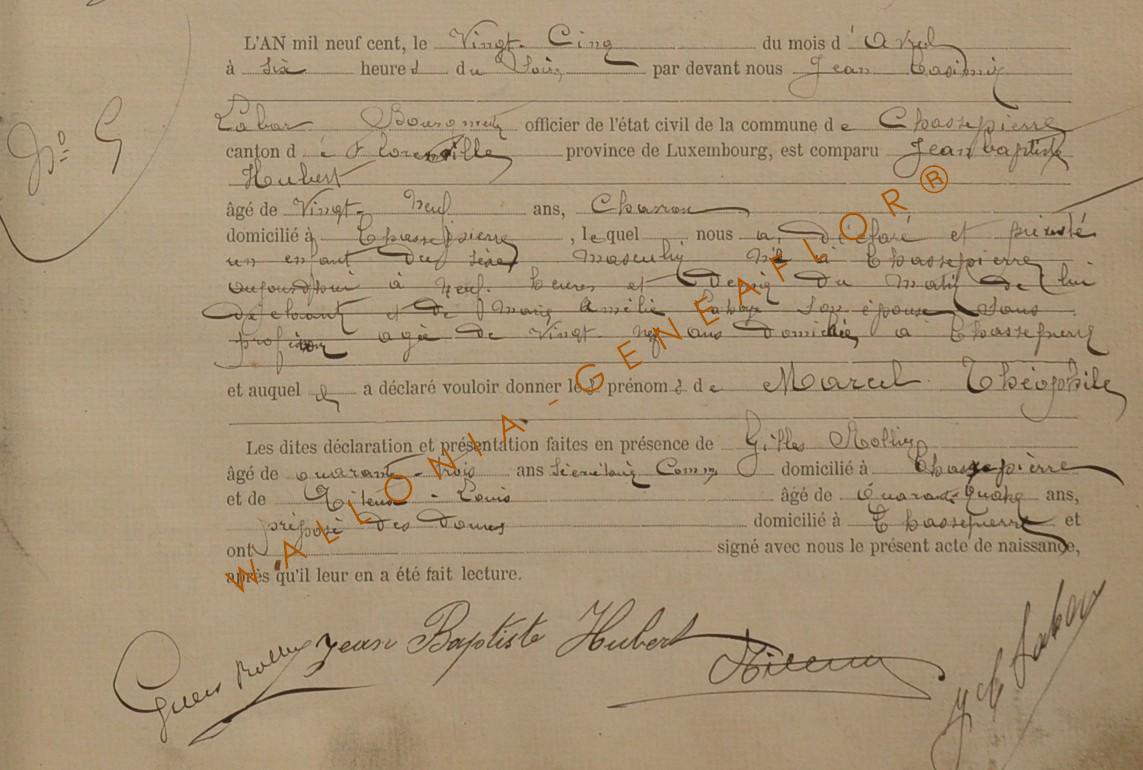 L'AN mil neuf cent, le Vingt-Cinq du mois d' Avril
à six heures du Soir, par devant nous Jean Casimir
Labar Bourgmestre officier de l'état civil de la commune de Chassepierre
canton de Florenville province de Luxembourg, est comparu Jean baptiste
Hubert
âgé de Vingt-Neuf ans, Charron
domicilié à Chassepierre, lequel nous a déclaré et présenté
un enfant du sexe masculin né à Chassepierre
aujourd'hui à neuf heures et demie du matin de lui
déclarant et de Marie Amélie son épouse sans
profession agée de Vingt ans domiciliée à Chassepierre
et auquel il a déclaré vouloir donner les prénoms de Marcel Théophile
Les dites déclaration et présentation faites en présence de Gilles Rollin
âgé de quarante-trois ans Secrétaire Comm domicilié à Chassepierre
et de Louis âgé de Quarante-quatre ans,
préposé des douanes domicilié à Chassepierre et
ont signé avec nous le présent acte de naissance,
après qu'il leur en a été fait lecture.
Jean Baptiste Hubert
J C Labar
N° 9
WALLONIA - GENEAFLOR®